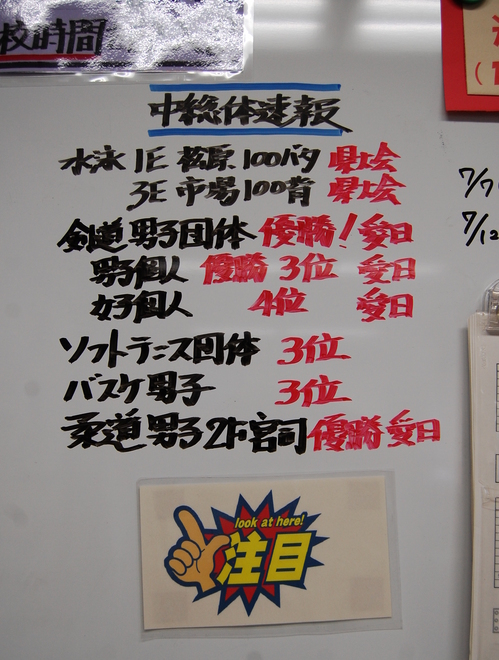 校時間
中総体速報
水泳 1E 萩原 100バタ 県大会
3E 市場 100背 県大会
剣道 男子団体 優勝! 愛日
男子個人 優勝 3位 愛日
女子個人 4位 愛日
ソフトテニス団体 3位
バスケ男子 3位
柔道 男子 2F 宮司 優勝 愛日
look at here!
注目
7/7
7/12